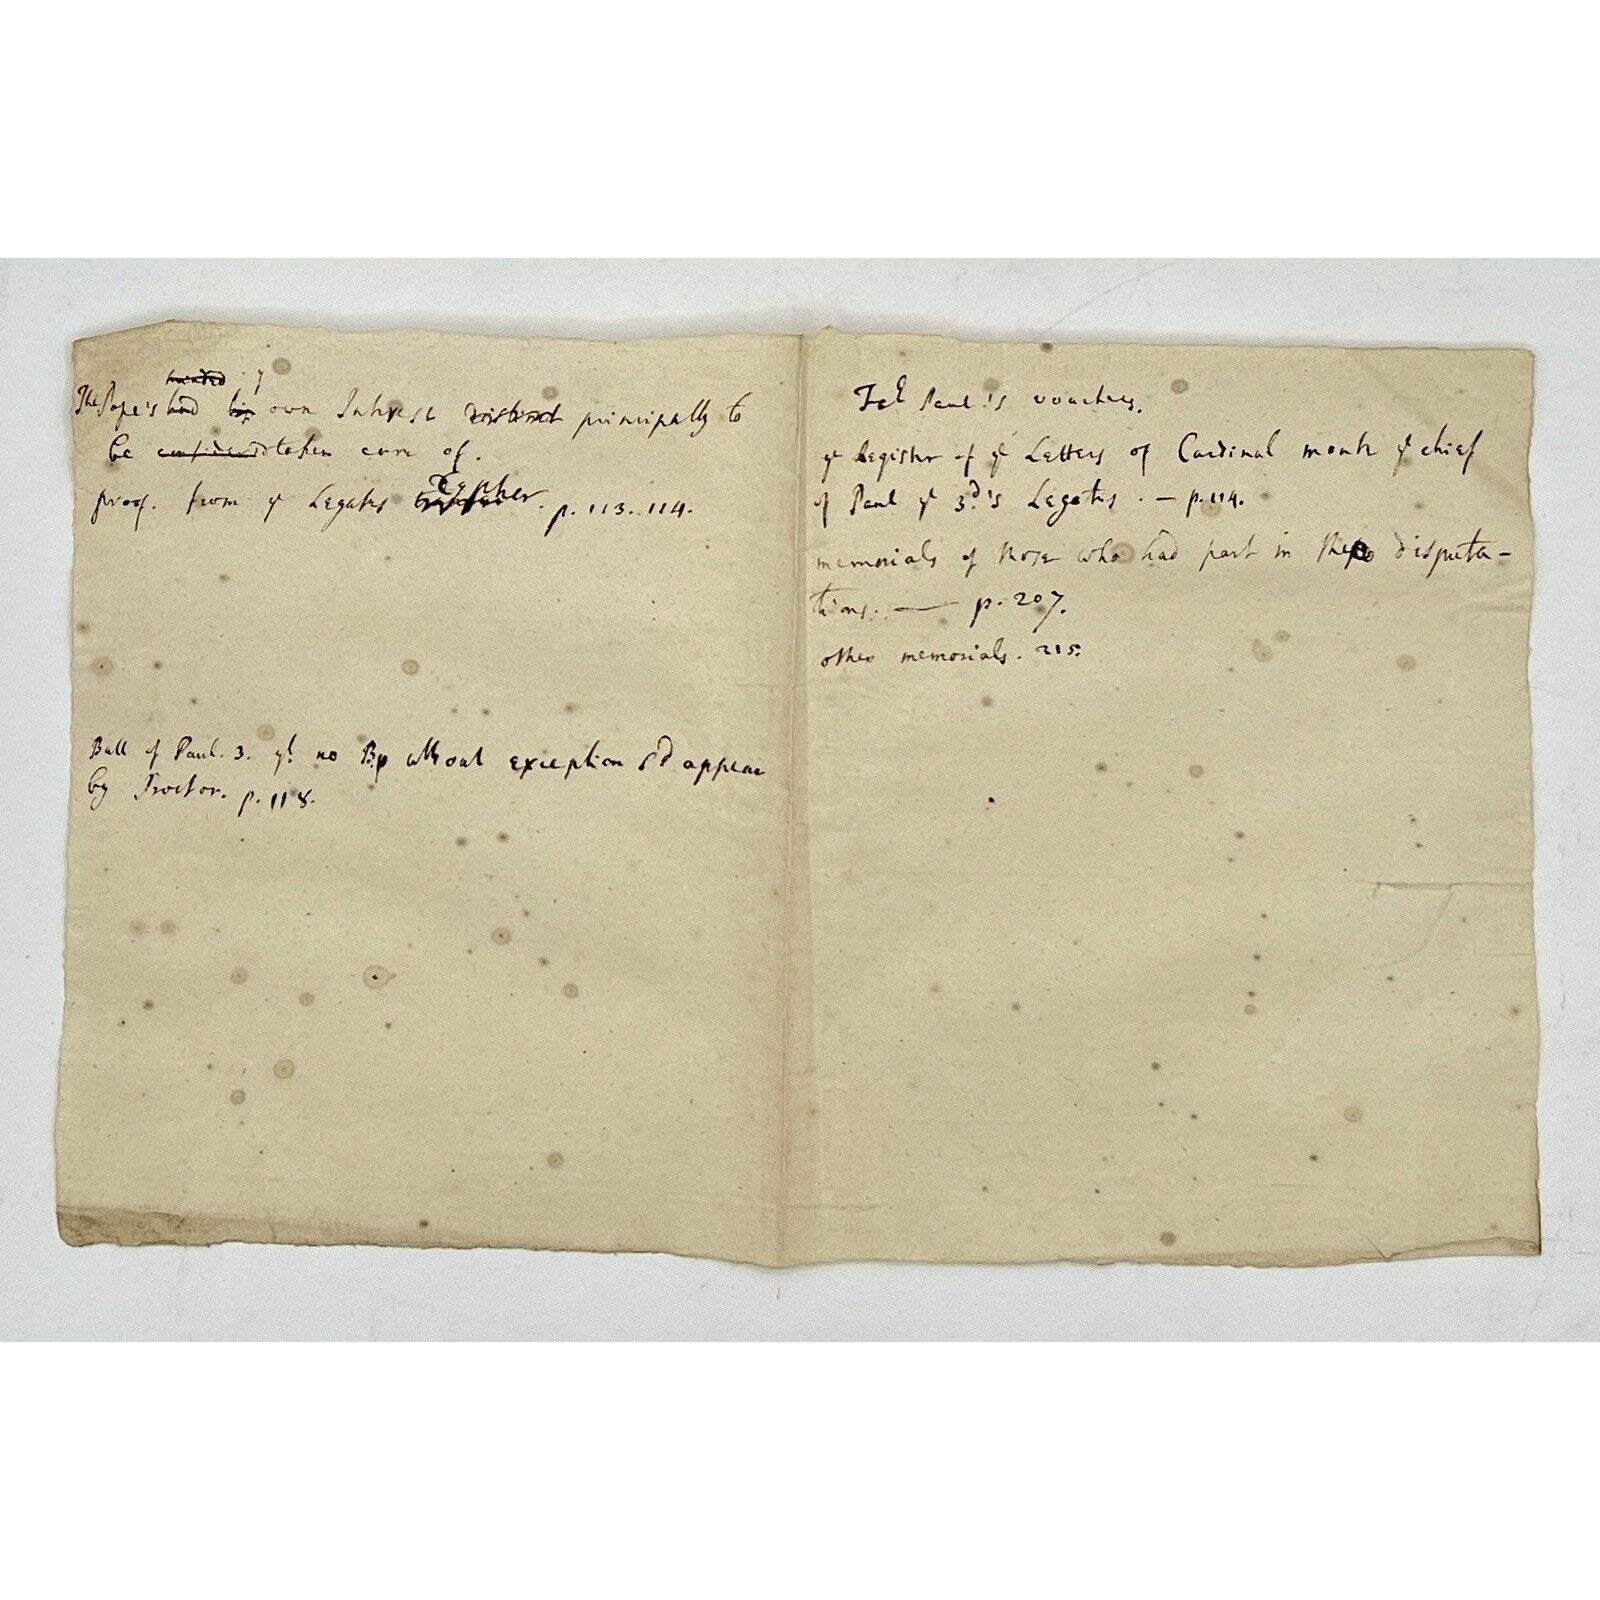 The Pope's had his own Interest principally to
be considerd taken care of.
proof. from ye Legates Cypher. p. 113. 114.
Bull of Paul. 3. yt no Bp without exception sd appear
by Proctor. p. 118.
Fr Paul's vouchers.
ye Register of ye Letters of Cardinal monte ye chief
of Paul ye 3d's Legates. — p. 114.
memorials of those who had part in these disputa-
tions. — p. 207.
other memorials. 215.